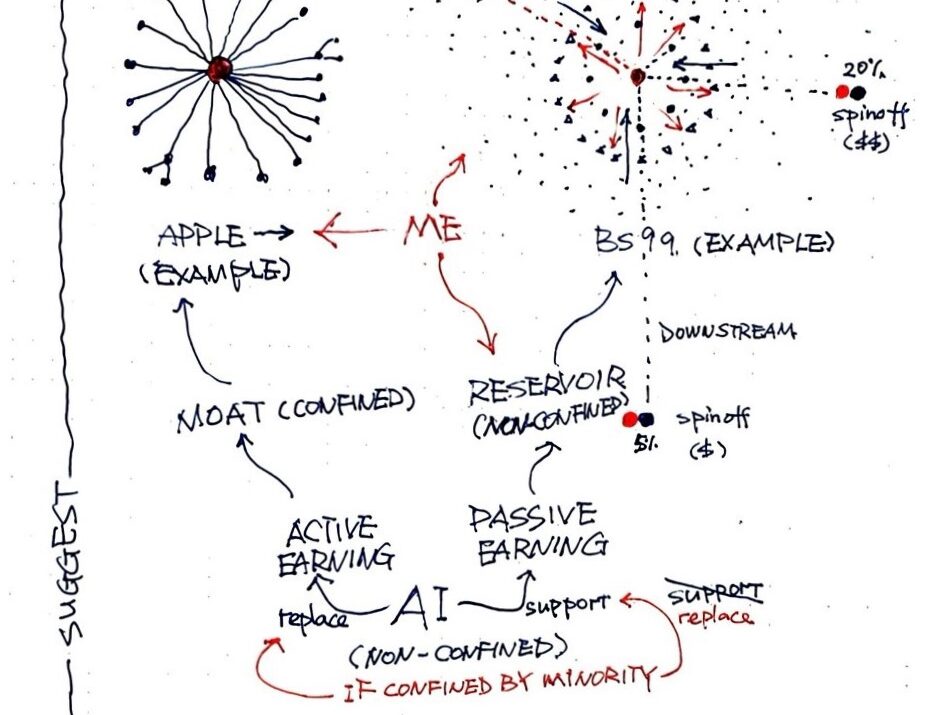 20%
spinoff
($$)
APPLE
(EXAMPLE)
ME
BS99. (EXAMPLE)
DOWNSTREAM
MOAT (CONFINED)
RESERVOIR
(NON-CONFINED)
5%
spinoff
($)
ACTIVE
EARNING
PASSIVE
EARNING
replace
AI
support
SUPPORT
replace
(NON-CONFINED)
IF CONFINED BY MINORITY
SUGGEST